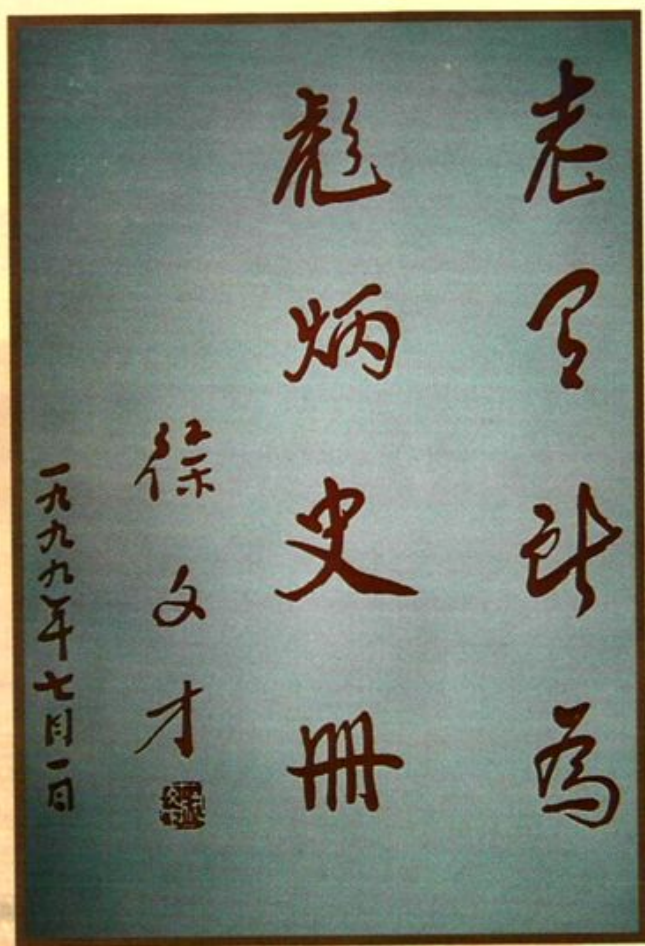 老有所為
彪炳史冊
徐文才
一九九九年七月一日